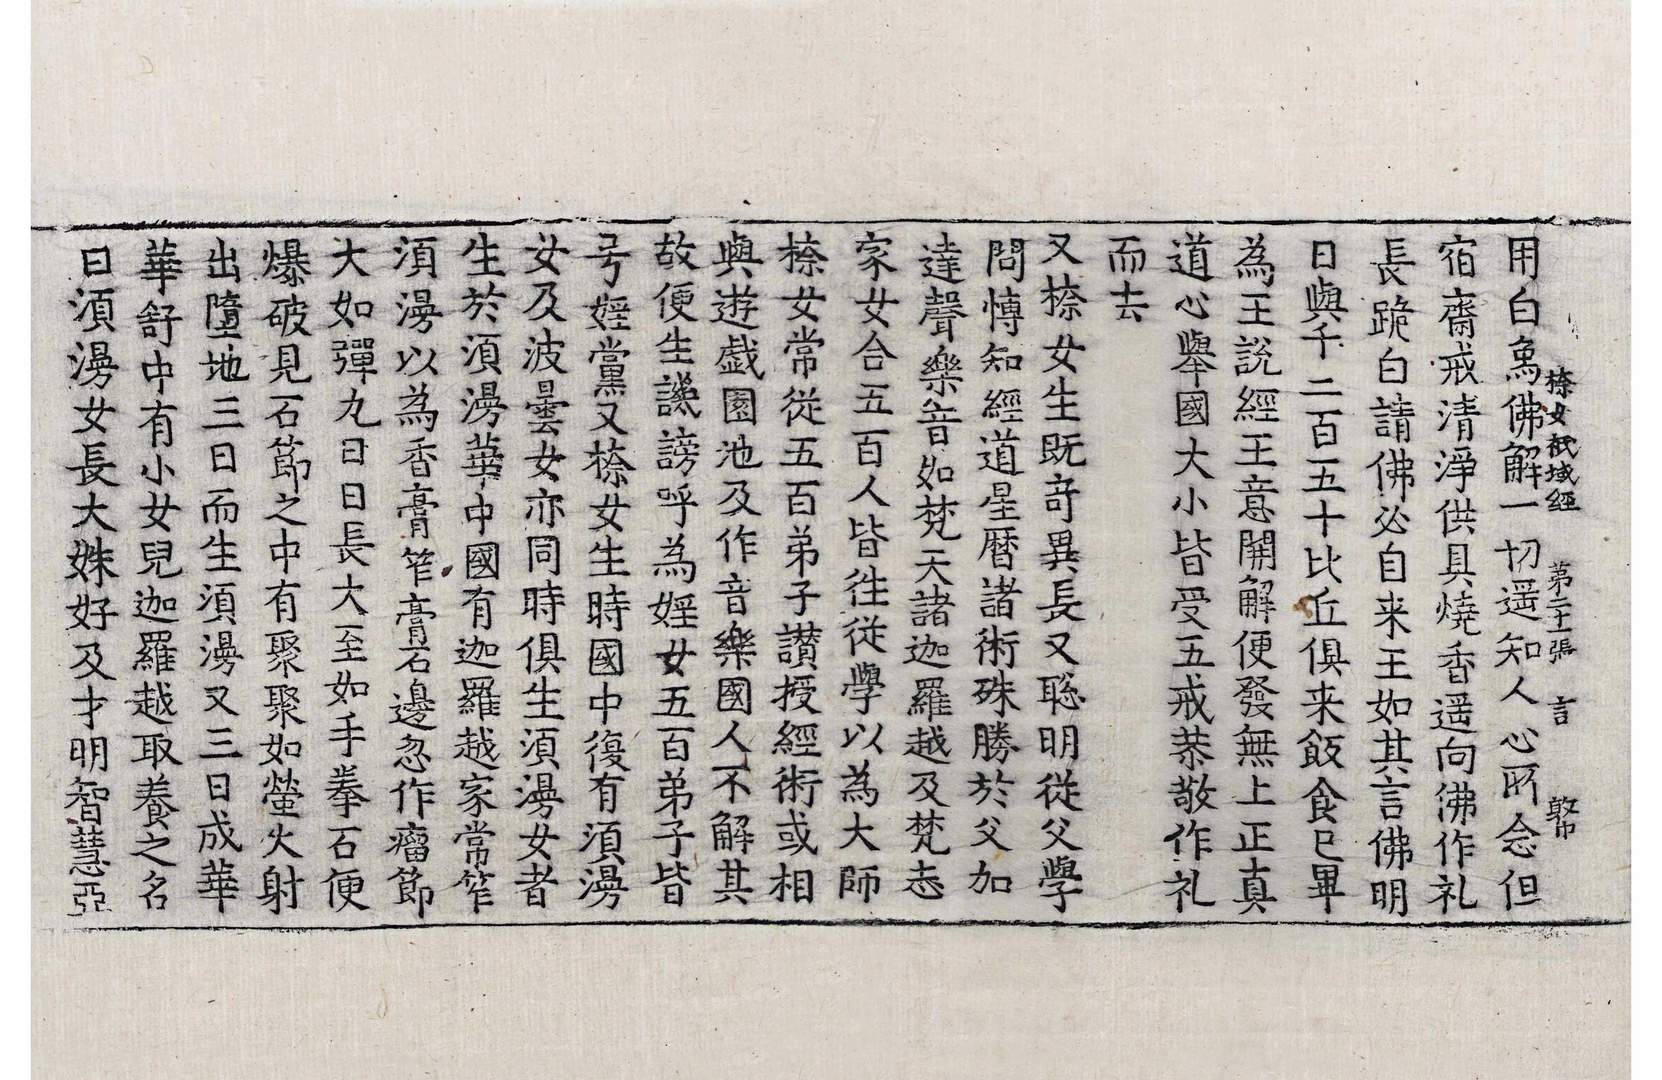 㮈女祇域經 第二十張 言
用白為佛解一切遥知人心所念但
宿齋戒清淨供具燒香遥向佛作礼
長跪白請佛必自来王如其言佛明
日與千二百五十比丘俱来飯食已畢
為王說經王意開解便發無上正真
道心舉國大小皆受五戒恭敬作礼
而去
又㮈女生既竒異長又聡明從父學
問愽知經道星暦諸術殊勝於父加
達聲樂音如梵天諸迦羅越及梵志
家女合五百人皆徃從學以為大師
㮈女常從五百弟子讃授經術或相
與遊戱園池及作音樂國人不解其
故便生譏謗呼為婬女五百弟子皆
号婬黨又㮈女生時國中復有湏漫
女及波曇女亦同時俱生湏漫女者
生於湏漫華中國有迦羅越家常笮
湏漫以為香膏笮膏石邊忽作瘤節
大如彈丸日日長大至如手拳石便
爆破見石節之中有聚聚如螢火射
出墮地三日而生湏漫又三日成華
華舒中有小女兒迦羅越取養之名
曰湏漫女長大姝好及才明智慧亞